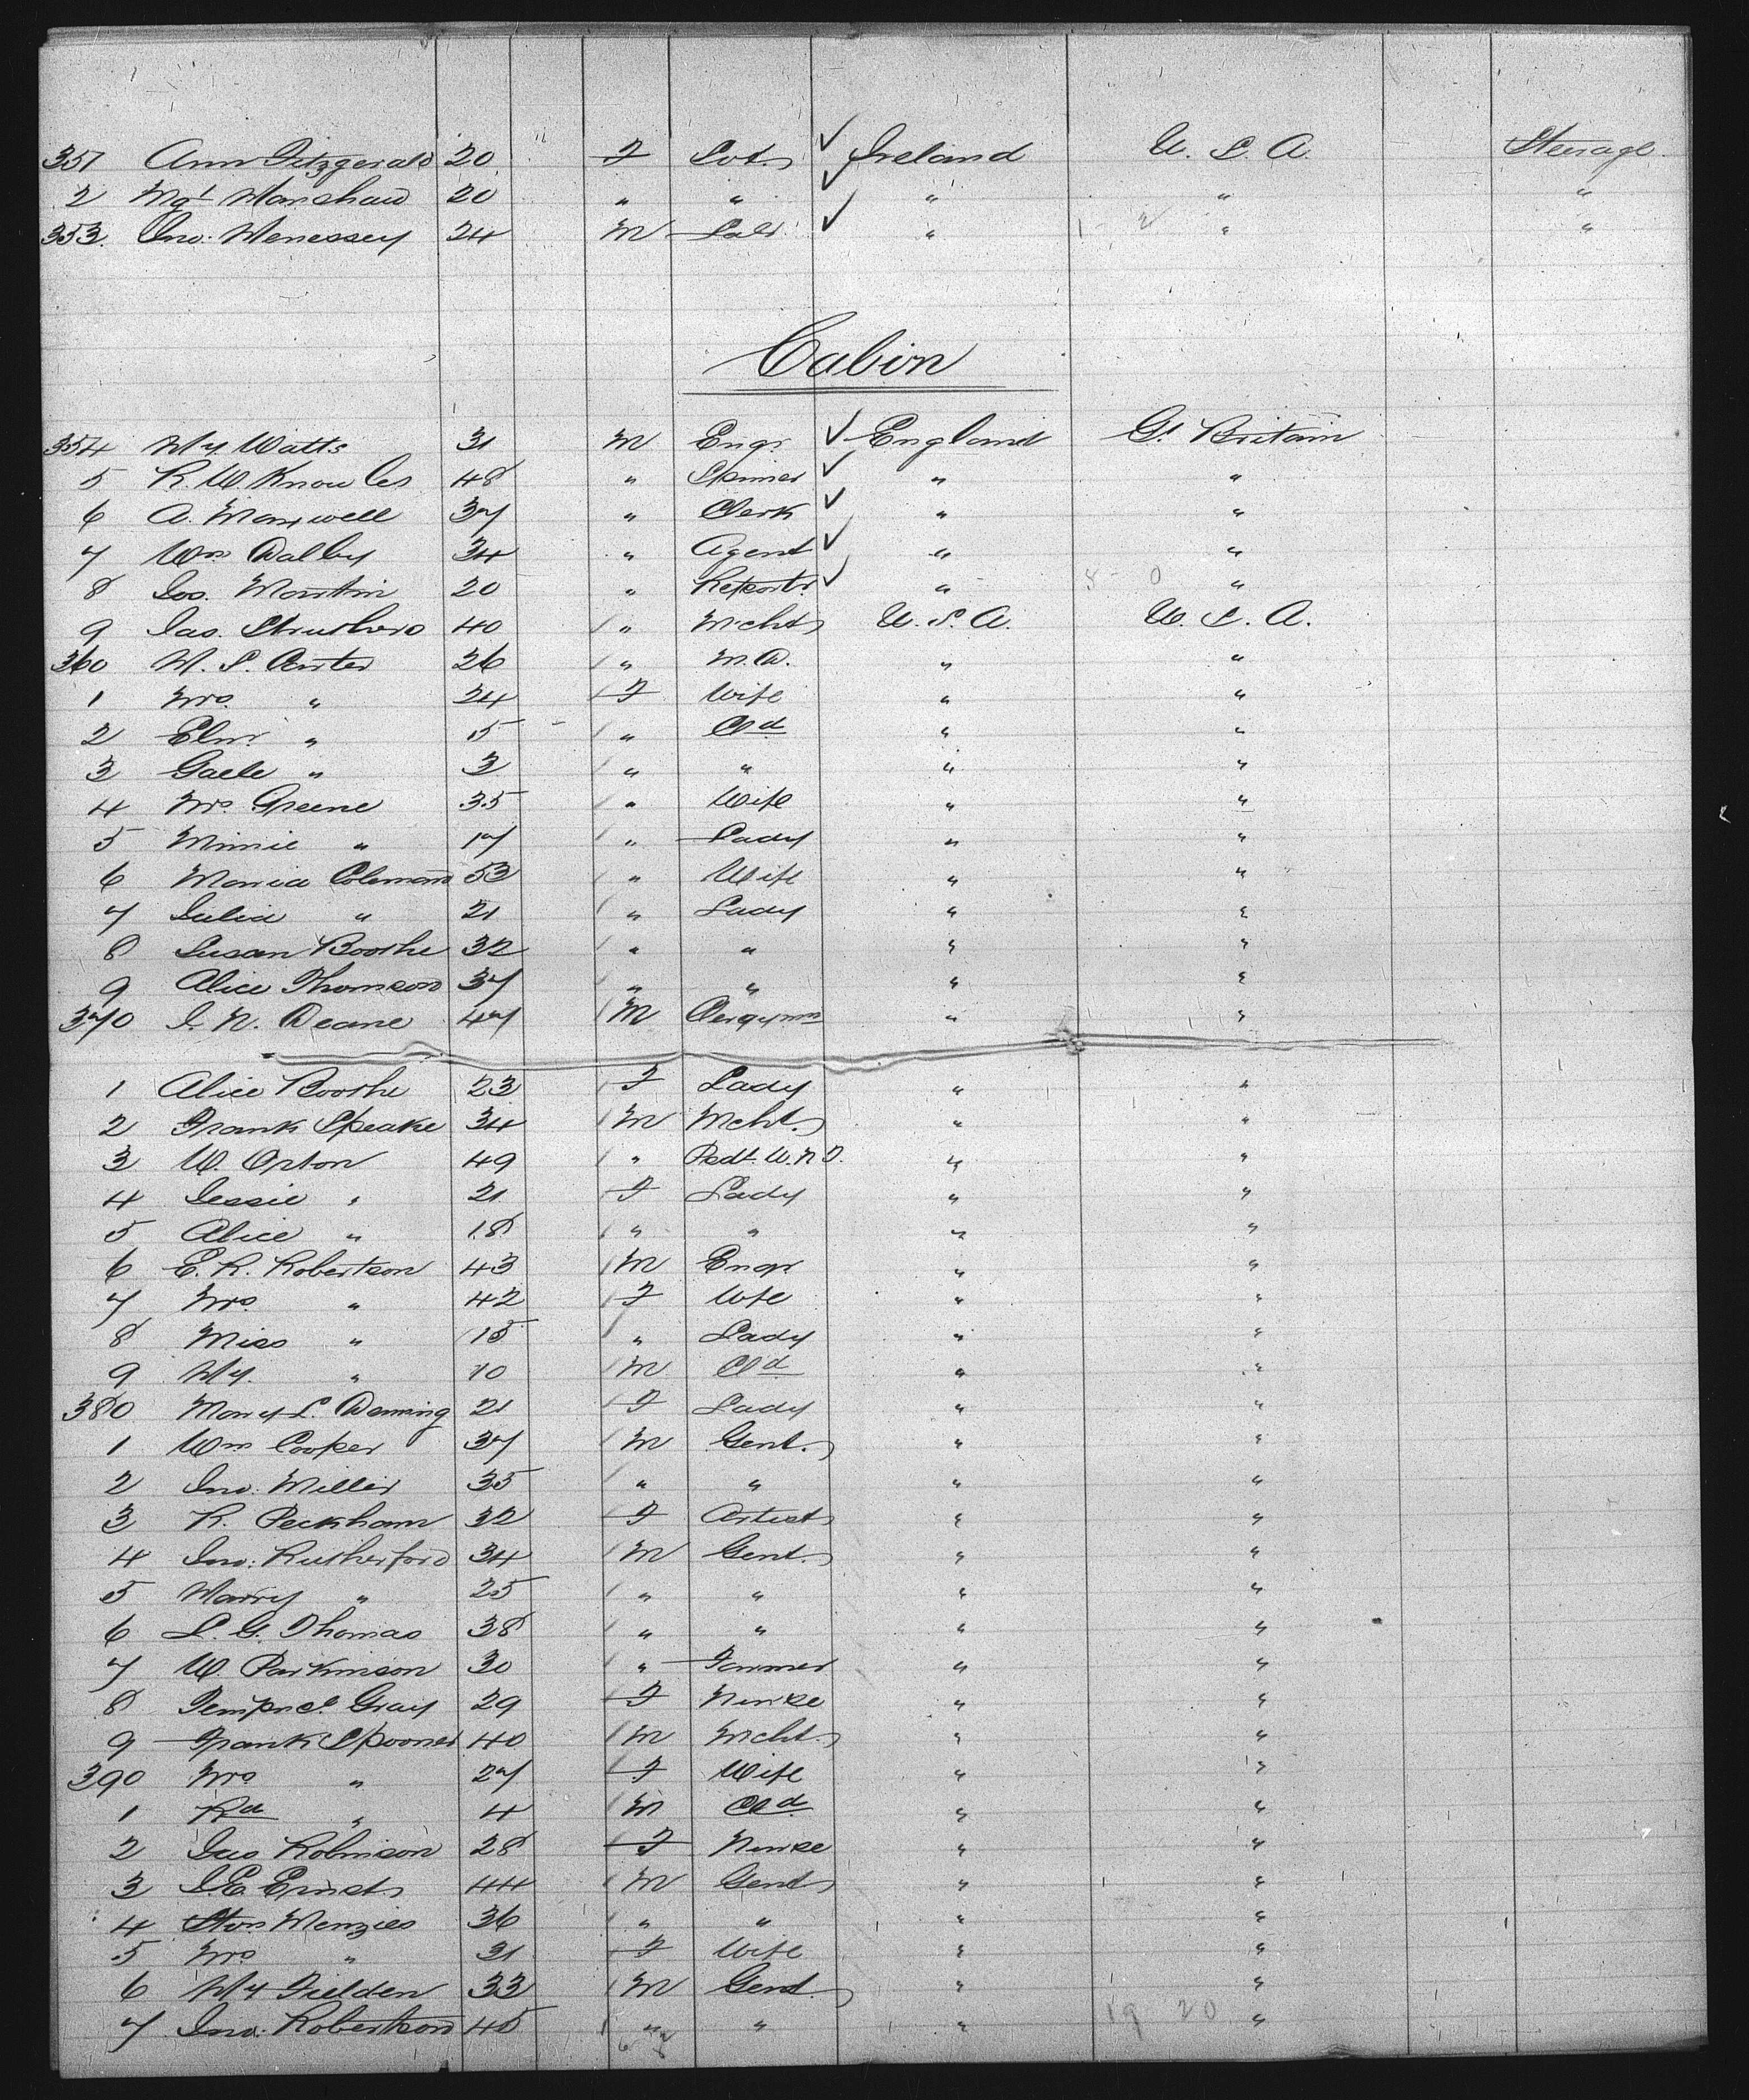 351 Ann Fitzgerald 20 F Ireland U. S. A. Steerage
2 Mgt 20 " " " " "
353. Jno: Henessey 24 M Labr " " "
Cabin
354 Hy Watts 31 M Engr England Gt Britain
5 R. W Knowles 48 " " "
6 A. Maxwell 37 " Clerk " "
7 Wm Dalby 34 " Agent " "
8 Jos. Martin 20 " Reportr " "
9 Jas. Struthers 40 " Mcht U. S. A. U. S. A.
360 H. S. 26 " M. D. " "
1 Mrs " 24 F Wife " "
2 " " Cld " "
3 " 3 " " " "
4 Mrs Greene 35 " Wife " "
5 Minnie " 17 " Lady " "
6 Maria Coleman 53 " Wife " "
7 Julia " 21 " Lady " "
8 Susan Boothe 32 " " " "
9 Alice Thomson 37 " " " "
370 J. N. Deane 47 M Clergymn " "
1 Alice Boothe 23 F Lady " "
2 Frank Speake 34 M Mcht " "
3 W. Orton 49 " Psdt. W. N " "
4 Jessie " 21 F Lady " "
5 Alice " 18 " " " "
6 E. R. Robertson 43 M Engr " "
7 Mrs " 42 F Wife " "
8 Miss " 15 " Lady " "
9 Hy. " 10 M Cld " "
380 Mary L. Deming 21 F Lady " "
1 Wm Cooper 37 M Gent. " "
2 Jno: Miller 35 " " " "
3 R. Peckham 32 F Artist " "
4 Jno: Rutherford 34 M Gent. " "
5 Harry " 25 " " " "
6 L. G. Thomas 38 " " " "
7 W. Parkinson 30 " Farmer " "
8 Gray 29 F Nurse " "
9 Frank Spooner 40 M Mcht. " "
390 Mrs " 27 F Wife " "
1 Rd " 4 M Cld " "
2 Robinson 28 F Nurse " "
3 J. E. Ernst 44 M Gent " "
4 Menzies 36 " " " "
5 Mrs " 31 F Wife " "
6 Hy Fielden 33 M Gent. " "
7 Jno: Robertson 45 " " " 19 20 "